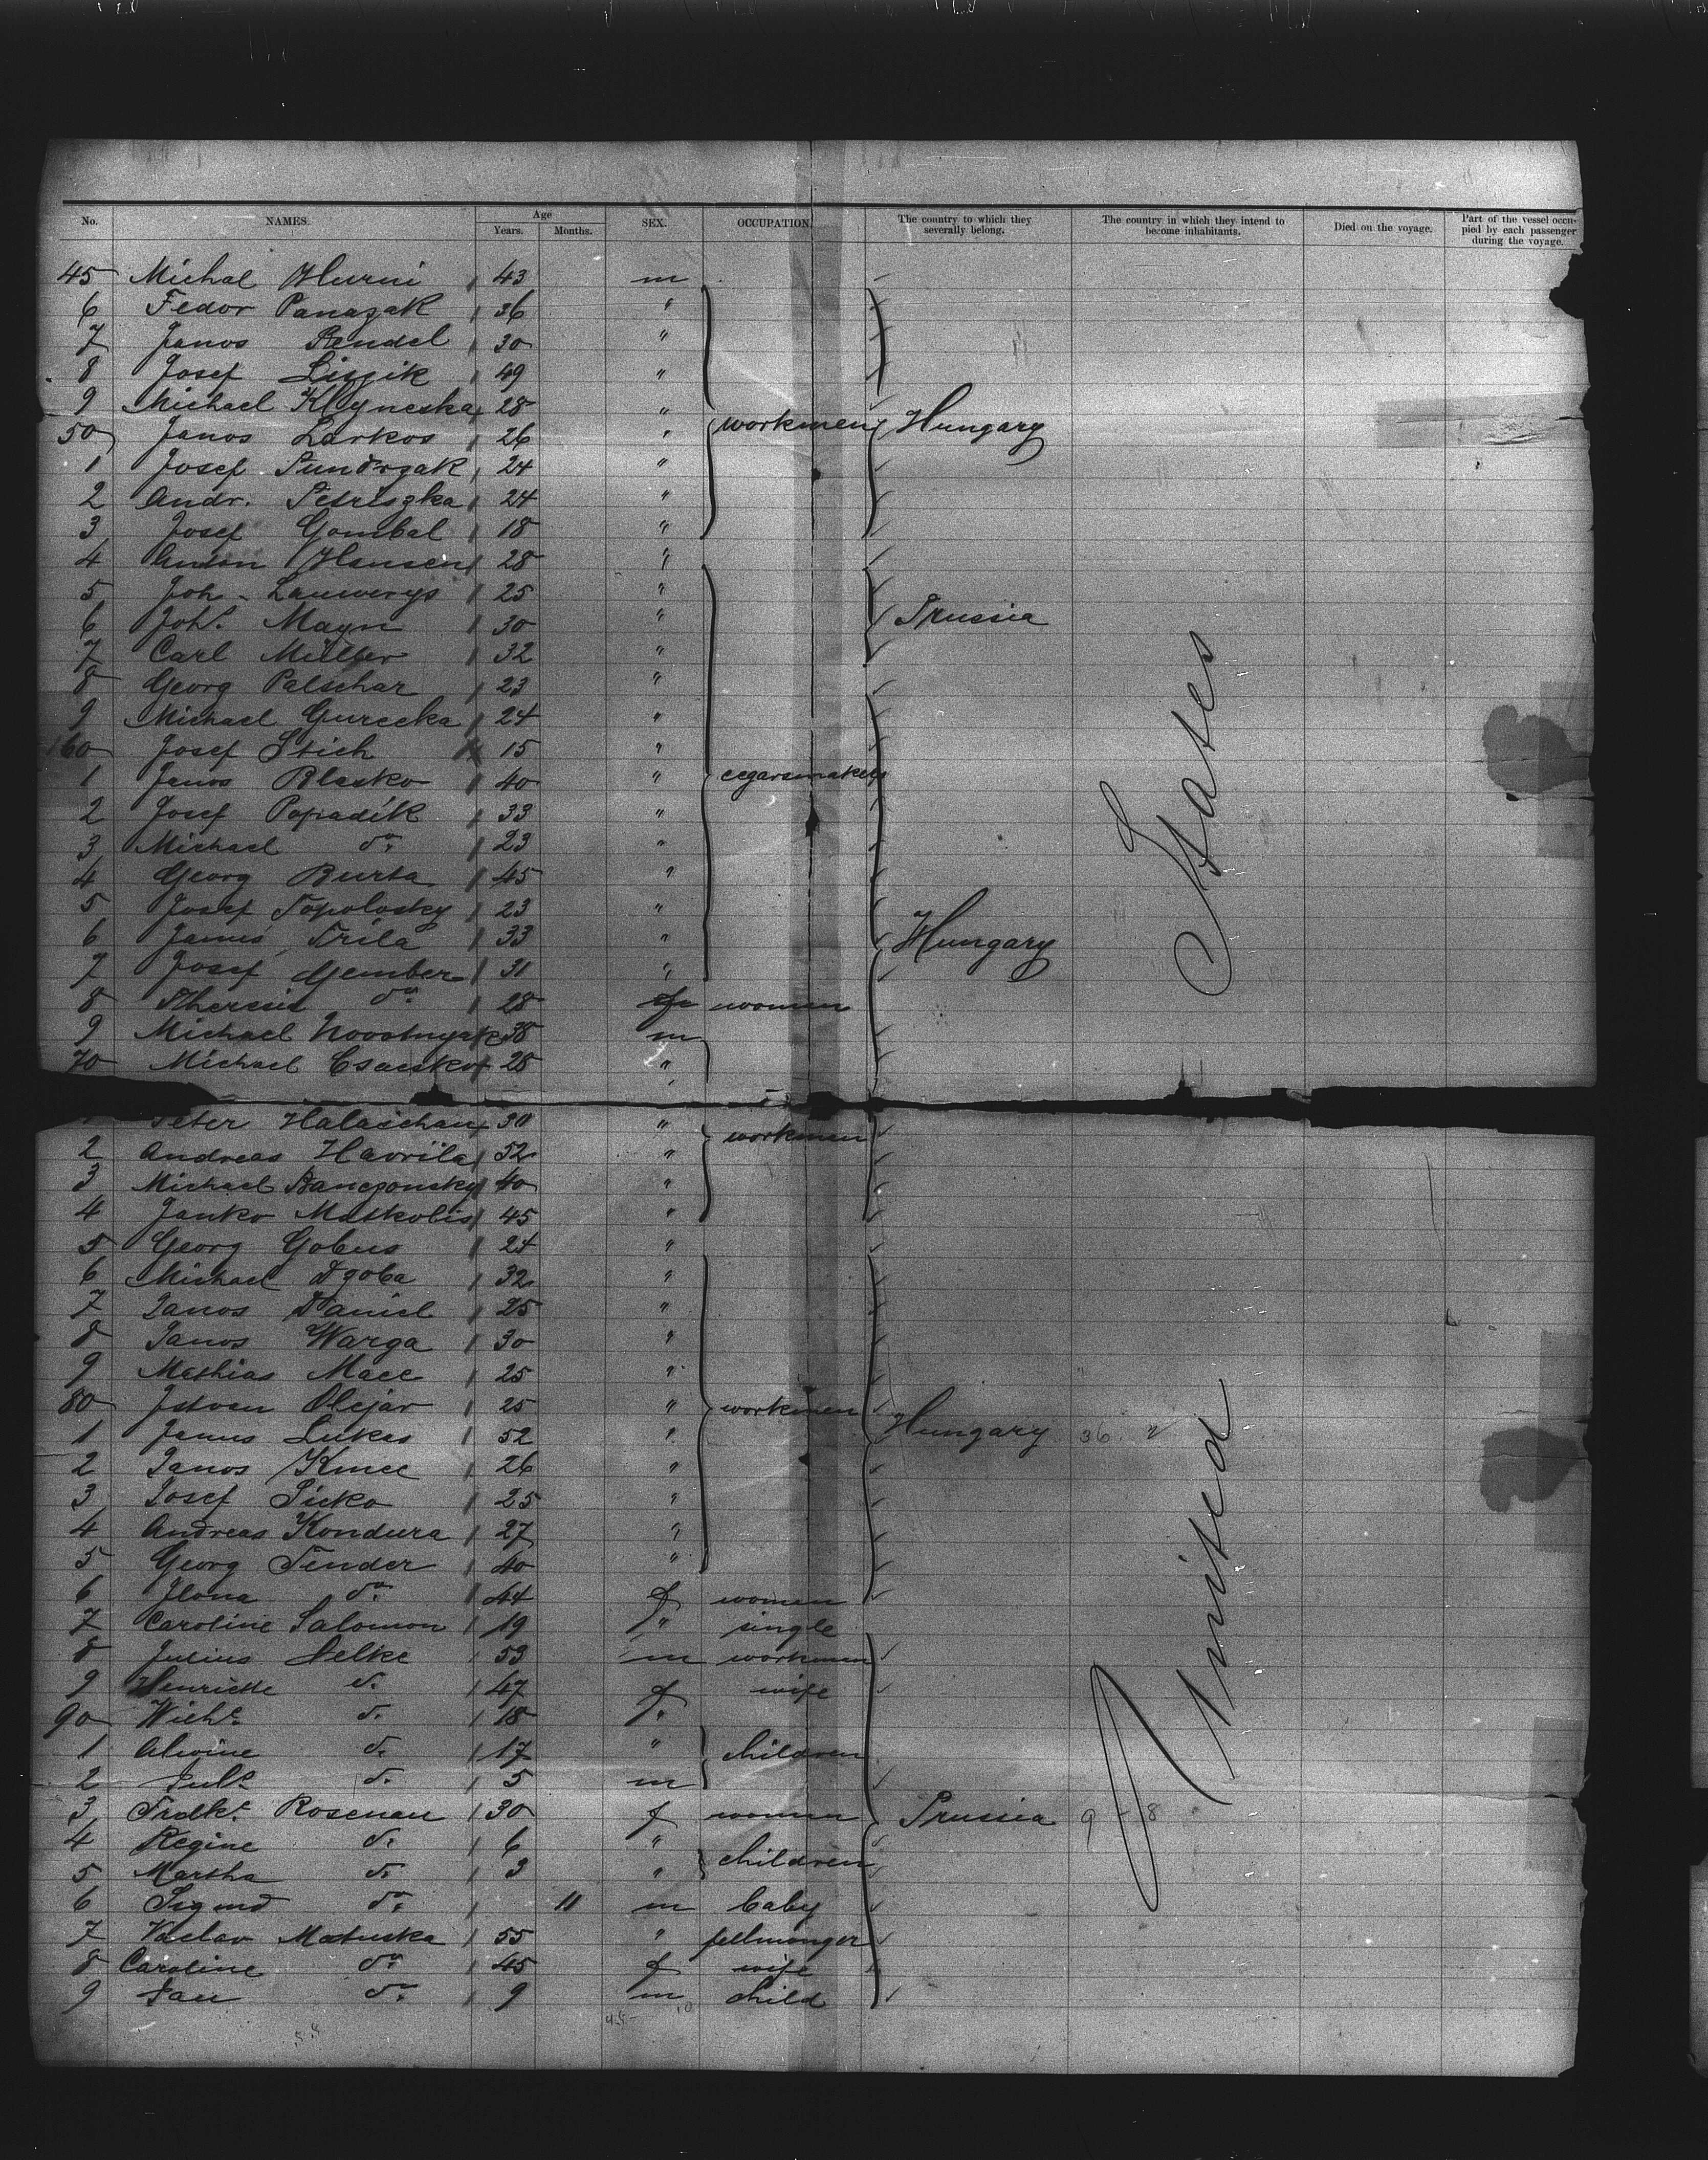 No. NAMES. Age Years. Months. SEX. OCCUPATION. The country to which they severally belong. The country in which they intend to become inhabitants. Died on the voyage. Part of the vessel occupied by each passenger during the voyage.
45 Michal Hurni 43 m
6 Fedor Panazak 36 "
7 Janos Rendel 30 "
8 Josef Liszik 49 "
9 Michael Klyneska 28 "
50 Janos Larkos 26 " workmen Hungary
1 Josef 24 "
2 Andr. Petriszka 24 "
3 Josef Gombal 18 "
4 Anton Hansen 28 "
5 Joh. Lauwerys 25 "
6 Joh. Mayn 30 " Prussia
7 Carl Müller 32 "
8 Georg Palschar 23 "
9 Michael Gurecka 24 "
160 Josef Stich 15 "
1 Janos Blasko 40 " cegarsmakers
2 Josef Popradik 33 "
3 Michael do. 23 "
4 Georg Burta 45 "
5 Josef Topolosky 23 "
6 Janus Trila 33 " Hungary
7 Josef Gember 31 "
8 Theresia do. 28 f women
9 Michael 38 m
70 Michael 28 "
Peter Halaschan 30 " workmen
2 Andreas Havrila 52 "
3 Michael Banczonsky 40 "
4 Janko Matkobis 45 "
5 Georg Gobus 24 "
6 Michael Dzoba 32 "
7 Janos Daniel 25 "
8 Janos Warga 30 "
9 Mathias Mace 25 "
80 Istvan Olejar 25 " workmen
1 Janus Lukas 52 " Hungary 36
2 Janos Kmec 26 "
3 Josef Sicko 25 "
4 Andreas Kondura 27 "
5 Georg Tender 40 "
6 Ilona do. 44 f women
7 Caroline Salomon 19 " single
8 Julius Selke 53 m workmen
9 Henriette d. 47 f wife
90 Wilhe. d. 18 f.
1 Alwine d. 17 " children
2 Juls. d. 5 m
3 Frdke. Rosenau 30 f women Prussia 9 - 8
4 Regine d. 6 "
5 Martha d. 3 " children
6 Sigmd do. 11 m baby
7 Vaclav Matuska 55 " fellmonger
8 Caroline do. 45 f wife
9 Jan do. 9 m child
United States